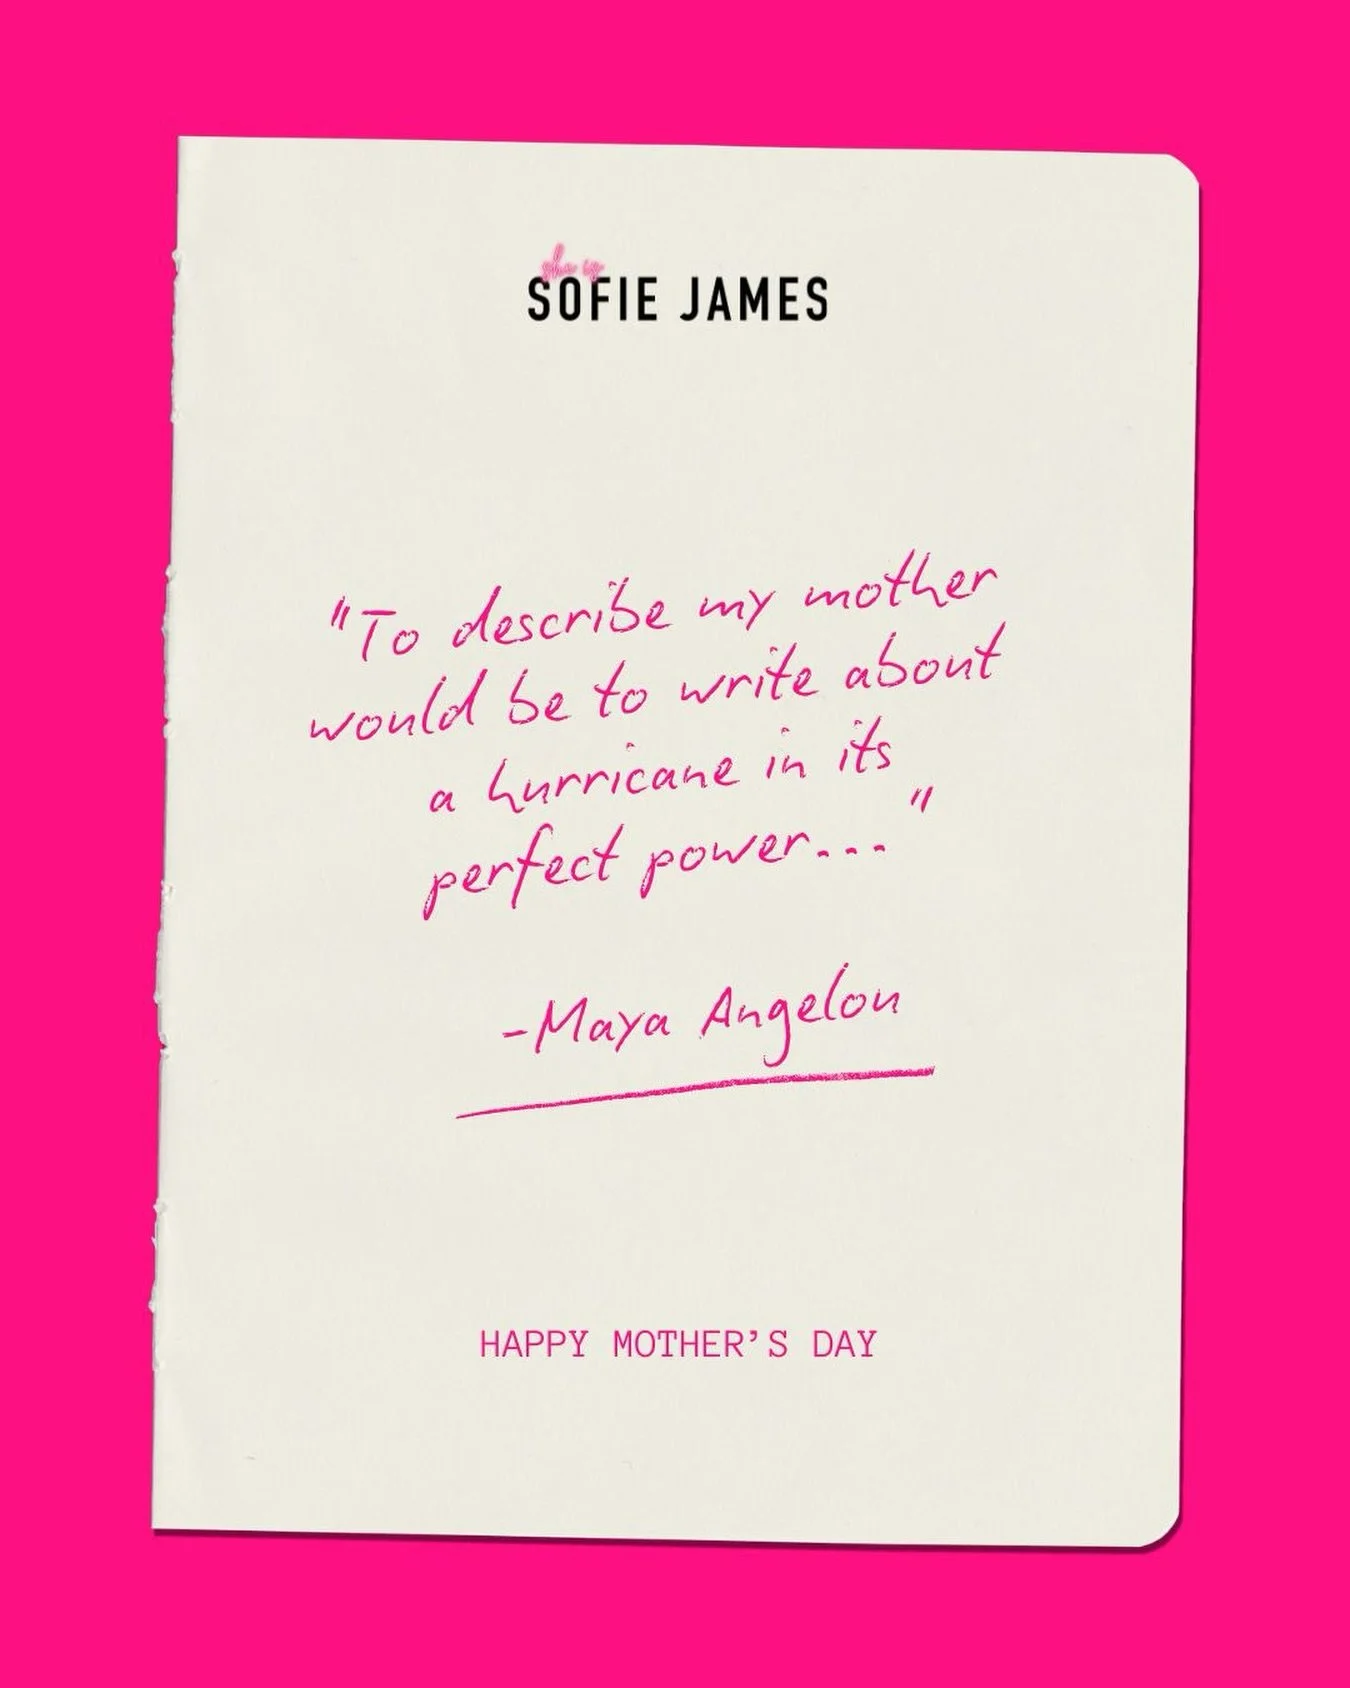 she is
SOFIE JAMES
"To describe my mother
would be to write about
a hurricane in its
perfect power..."
-Maya Angelou
HAPPY MOTHER'S DAY